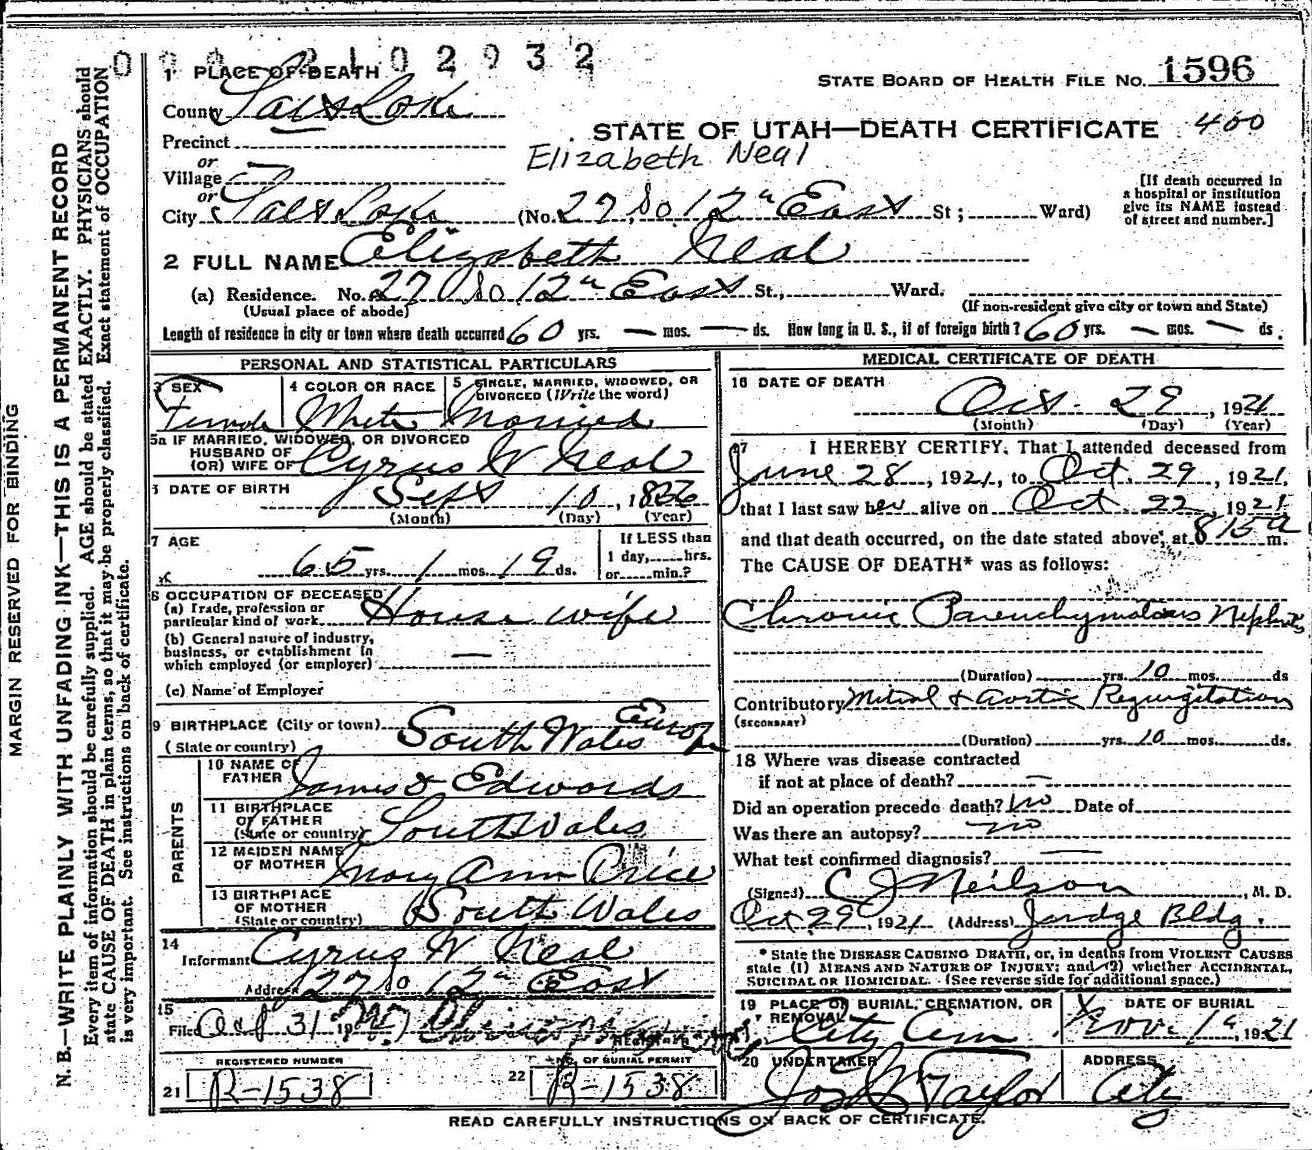 0002102932
1 PLACE OF DEATH
STATE BOARD OF HEALTH FILE NO. 1596
County Salt Lake
STATE OF UTAH—DEATH CERTIFICATE 400
Precinct
Elizabeth Neal
or
Village
or
City Salt Lake (No. 27 So 12th East St; Ward)
[If death occurred in
a hospital or institution
give its NAME instead
of street and number.]
2 FULL NAME Elizabeth Neal
(a) Residence. No. 27 So 12th East St., Ward.
(Usual place of abode)
(If non-resident give city or town and State)
Length of residence in city or town where death occurred 60 yrs. — mos. — ds. How long in U. S., if of foreign birth? 60 yrs. — mos. — ds.
PERSONAL AND STATISTICAL PARTICULARS
3 SEX
Female
4 COLOR OR RACE
White
5 SINGLE, MARRIED, WIDOWED, OR
DIVORCED (Write the word)
Married
5a IF MARRIED, WIDOWED, OR DIVORCED
HUSBAND OF
(OR) WIFE OF Cyrus W Neal
6 DATE OF BIRTH
Sept 10, 1856
(Month) (Day) (Year)
7 AGE
65 yrs. 1 mos. 19 ds.
If LESS than
1 day, hrs.
or min.?
8 OCCUPATION OF DECEASED
(a) Trade, profession or
particular kind of work House wife
(b) General nature of industry,
business, or establishment in
which employed (or employer) —
(c) Name of Employer
9 BIRTHPLACE (City or town) South Wales Europe
(State or country)
PARENTS
10 NAME OF
FATHER James Edwards
11 BIRTHPLACE
OF FATHER
(State or country) South Wales
12 MAIDEN NAME
OF MOTHER Mary Ann Price
13 BIRTHPLACE
OF MOTHER
(State or country) South Wales
14
Informant Cyrus W Neal
Address 27 So 12th East
15
Filed Oct 31 19
REGISTRAR
REGISTERED NUMBER
21 R-1538
NO. OF BURIAL PERMIT
22 R-1538
MEDICAL CERTIFICATE OF DEATH
16 DATE OF DEATH
Oct. 29, 1921
(Month) (Day) (Year)
17 I HEREBY CERTIFY, That I attended deceased from
June 28, 1921, to Oct. 29, 1921,
that I last saw her alive on Oct. 22, 1921
and that death occurred, on the date stated above, at 815a m.
The CAUSE OF DEATH* was as follows:
Chronic Parenchymatous Nephritis
(Duration) yrs. 10 mos. ds
Contributory Mitral & Aortic Regurgitation
(SECONDARY)
(Duration) yrs. 10 mos. ds.
18 Where was disease contracted
if not at place of death? —
Did an operation precede death? no Date of
Was there an autopsy? no
What test confirmed diagnosis? —
(Signed) C J Neilson, M. D.
Oct 29, 1921 (Address) Judge Bldg.
* State the DISEASE CAUSING DEATH, or, in deaths from VIOLENT CAUSES
state (1) MEANS AND NATURE OF INJURY; and (2) whether ACCIDENTAL,
SUICIDAL OR HOMICIDAL. (See reverse side for additional space.)
19 PLACE OF BURIAL, CREMATION, OR
REMOVAL
City Cem
DATE OF BURIAL
Nov. 1st, 1921
20 UNDERTAKER
Jos Wm Taylor
ADDRESS
City
READ CAREFULLY INSTRUCTIONS ON BACK OF CERTIFICATE.
MARGIN RESERVED FOR BINDING
N. B.—WRITE PLAINLY WITH UNFADING INK—THIS IS A PERMANENT RECORD
Every item of information should be carefully supplied. AGE should be stated EXACTLY. PHYSICIANS should
state CAUSE OF DEATH in plain terms, so that it may be properly classified. Exact statement of OCCUPATION
is very important. See instructions on back of certificate.